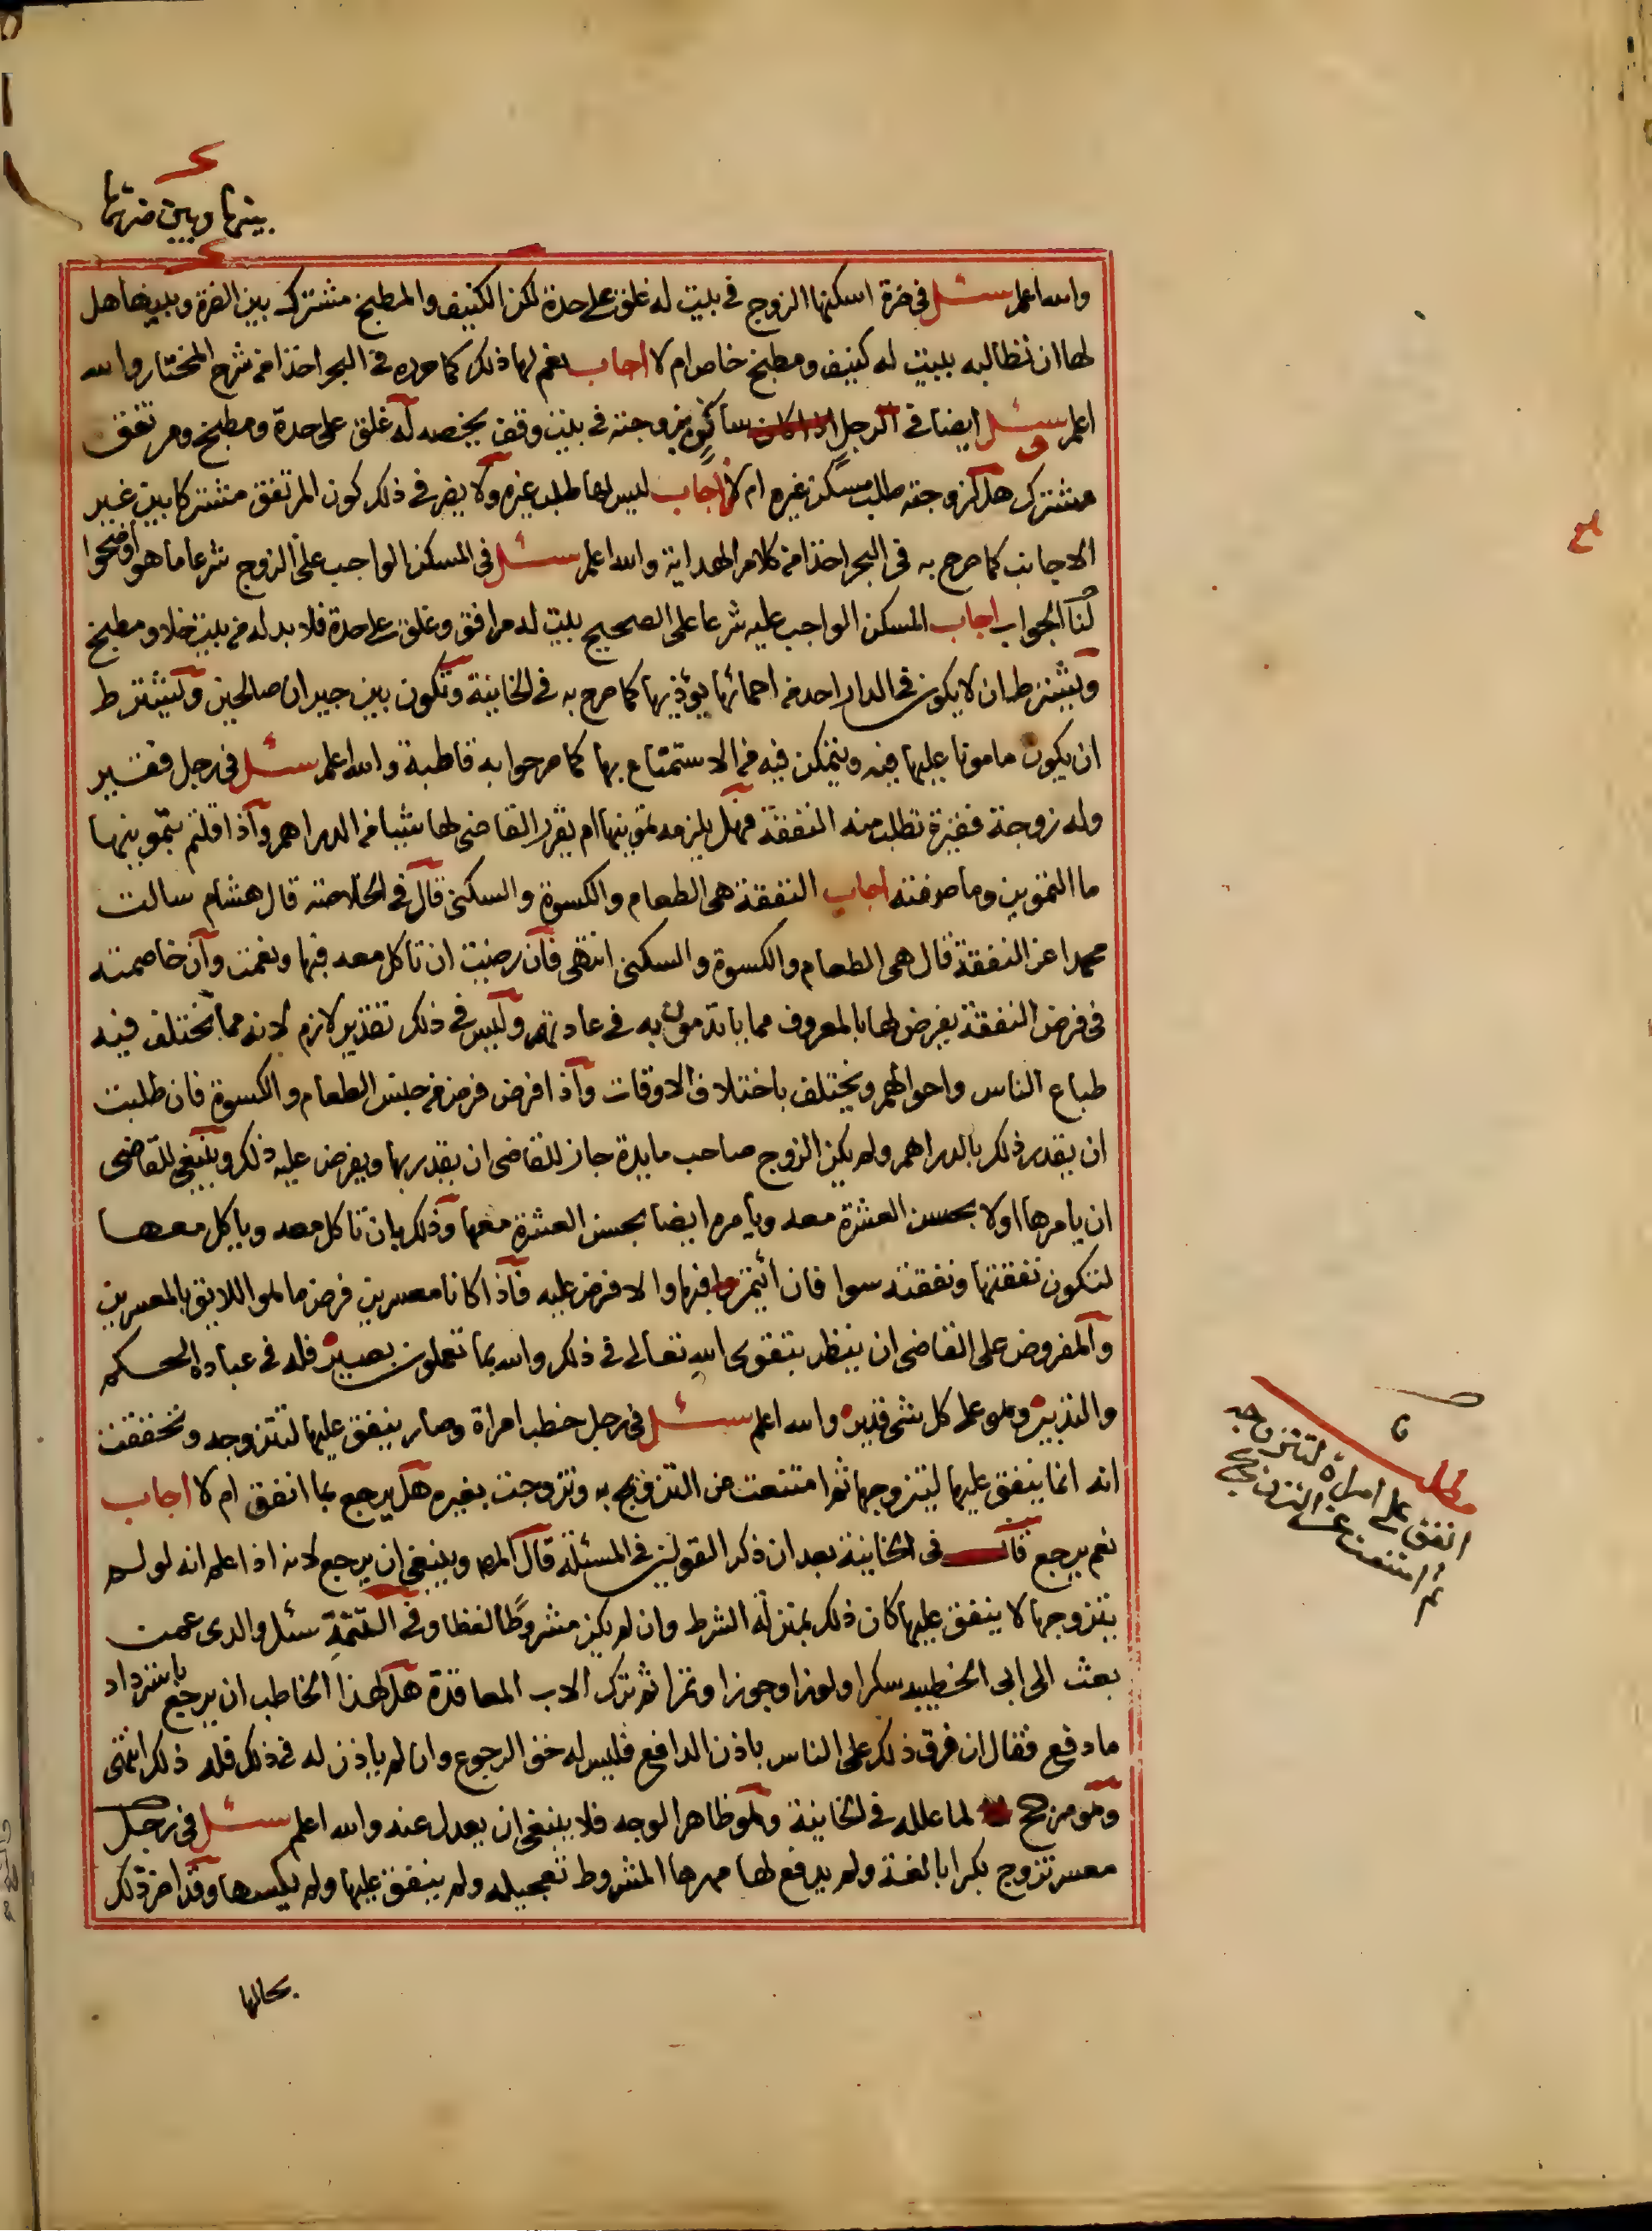 بينها وبين ضرتها
والله اعلم سئل في ضرة اسكنها الزوج في بيت له غلق على حدة لكن الكنيف والمطبخ مشترك بين الضرة وبينها هل
لها ان تطالبه ببيت له كنيف ومطبخ خاص ام لا اجاب نعم لها ذلك كما حرره في البحر اخذا من شرح المختار والله
اعلم سئل ايضا في الرجل ساكن بزوجته في بيت وقف يخصه له غلق على حدة ومطبخ ومرتفق
مشترك هل لزوجته طلب مسكن غيره ام لا اجاب ليس لها طلب غيره ولا يضر في ذلك كون المرتفق مشتركا بين غير
الاجانب كما صرح به في البحر اخذا من كلام الهداية والله اعلم سئل في المسكن الواجب على الزوج شرعا ما هو اوضحوا
لنا الجواب اجاب المسكن الواجب عليه شرعا على الصحيح بيت له مرافق وغلق على حدة فلا بد له من بيت خلا ومطبخ
ويشترط ان لا يكون في الدار احد من احمائها يؤذيها كما صرح به في الخانية وتكون بين جيران صالحين ويشترط
ان يكون مامونا عليها فيه ويتمكن فيه من الاستمتاع بها كما صرحوا به قاطبة والله اعلم سئل في رجل فقير
وله زوجة فقيرة تطلب منه النفقة فهل يلزمه تموينها ام يقرر القاضي لها شيا من الدراهم واذا قلتم بتموينها
ما التموين وما صفته اجاب النفقة هي الطعام والكسوة والسكنى قال في الخلاصة قال هشام سالت
محمدا عن النفقة قال هي الطعام والكسوة والسكنى انتهى فان رضيت ان تاكل معه فبها ونعمت وان خاصمته
في فرض النفقة يفرض لها بالمعروف مما ياتدمون به في عادتهم وليس في ذلك تقدير لازم لانه مما تختلف فيه
طباع الناس واحوالهم ويختلف باختلاف الاوقات واذا فرض فرض من جنس الطعام والكسوة فان طلبت
ان يقدر ذلك بالدراهم ولم يكن الزوج صاحب مايدة جاز للقاضي ان يقدر بها ويفرض عليه ذلك وينبغي للقاضي
ان يامرها اولا بحسن العشرة معه ويأمره ايضا بحسن العشرة معها وذلك بان تاكل معه وياكل معها
لتكون نفقتها ونفقته سوا فان ائتمروا فبها والا فرض عليه فاذا كانا معسرين فرض ما هو اللايق بالمعسرين
والمفروض على القاضي ان ينظر بتقوى الله تعالى في ذلك والله بما تعملون بصير فله في عباده الحكم
والتدبير وهو على كل شي قدير والله اعلم سئل في رجل خطب امراة وصار ينفق عليها لتتزوجه وتحققت
انه انما ينفق عليها ليتزوجها ثم امتنعت من التزوج به وتزوجت بغيره هل يرجع بما انفق ام لا اجاب
نعم يرجع قال في الخانية بعد ان ذكر القولين في المسئلة قال المص وينبغي ان يرجع لانه اذا علم انه لو لم
يتزوجها لا ينفق عليها كان ذلك بمنزلة الشرط وان لم يكن مشروطا لفظا وفي التتمة سئل والدي عمن
بعث الى ابي الخطيبه سكرا ولوزا وجوزا وتمرا ثم ترك الاب المعاقدة هل لهذا الخاطب ان يرجع باسترداد
ما دفع فقال ان فرق ذلك على الناس باذن الدافع فليس له حق الرجوع وان لم ياذن له في ذلك فله ذلك انتهى
وهو مرجح لما علله في الخانية وهو ظاهر الوجه فلا ينبغي ان يعدل عنه والله اعلم سئل في رجل
معسر تزوج بكرا بالغة ولم يدفع لها مهرها المشروط تعجيله ولم ينفق عليها ولم يكسها وقد اضر ذلك
بحالها
مطلب
انفق على امراة لتتزوجه
ثم امتنعت عن التزوج